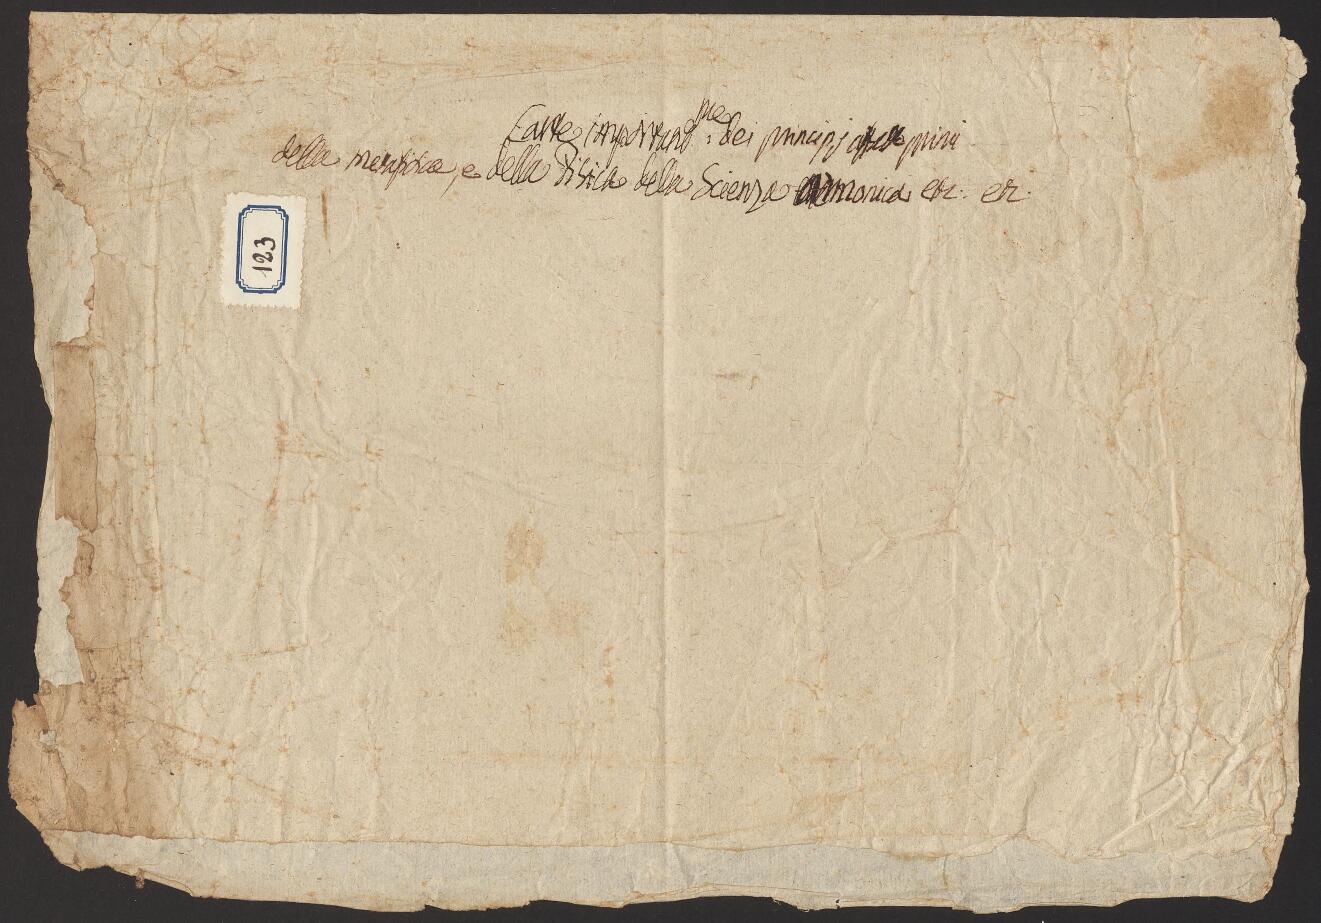 Carte importantme dei principj primi
della metafisica, e della Fisica della Scienza Armonica etc. etc.
123